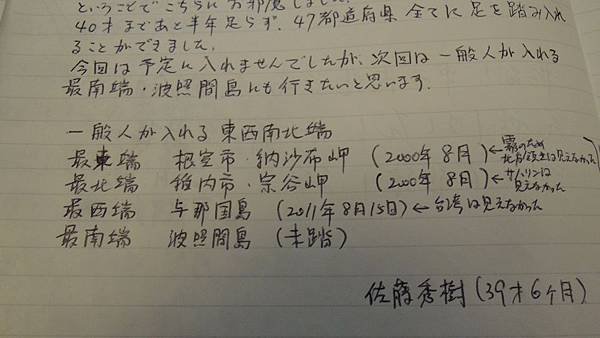 ということでこちらにお邪魔しました。
40才まであと半年足らず。47都道府県 全てに足を踏み入れ
ることができました。
今回は予定に入れませんでしたが、次回は一般人が入れる
最南端・波照間島にも行きたいと思います。
一般人が入れる東西南北端
最東端 根室市・納沙布岬 (2000年8月) ←霧のため
北方領土は見えなかった
最北端 稚内市・宗谷岬 (2000年8月) ←サハリンは
見えなかった
最西端 与那国島 (2011年8月15日) ←台湾は見えなかった
最南端 波照間島 (未踏)
佐藤秀樹(39才6ヶ月)